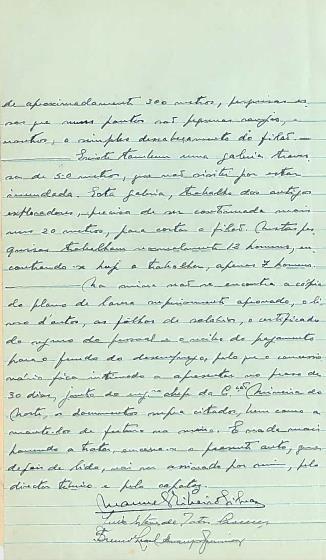 de aproximadamente 300 metros, pesquisas es-
sas que nuns pontos são pequenas sanjas, e
noutros, o simples descabeçamento do filão. —
Existe tambem uma galeria traves-
sa de 50 metros, que não visitei por estar
inundada. Esta galeria, trabalho dos antigos
exploradores, precisa de ser continuada mais
uns 20 metros, para cortar o filão. Nestas pes-
quisas trabalham normalmente 12 homens, en-
contrando-se hoje a trabalhar, apenas 7 homens.
— Na mina não se encontra a cópia
do plano de lavra superiormente aprovado, o li-
vro d'actas, as folhas de salários, o certificado
do seguro do pessoal e o recibo do pagamento
para o fundo do desemprego, pelo que o concessio-
nário fica intimado a apresentar no praso de
30 dias, junto do engº chefe da C. Mineira do
Norte, os documentos supra citados, bem como a
mante-los de futuro na mina. E nada mais
havendo a tratar, encerra-se o presente auto, que
depois de lido, vai ser assinado por mim, pelo
director técnico e pelo capataz.
Manuel Ribeiro Silva